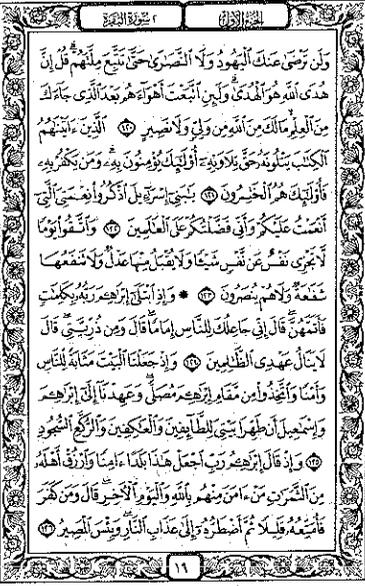 الجزء الأول
٢ سورة البقرة
وَلَن تَرْضَىٰ عَنكَ ٱلْيَهُودُ وَلَا ٱلنَّصَٰرَىٰ حَتَّىٰ تَتَّبِعَ مِلَّتَهُمْ ۗ قُلْ إِنَّ
هُدَى ٱللَّهِ هُوَ ٱلْهُدَىٰ ۗ وَلَئِنِ ٱتَّبَعْتَ أَهْوَآءَهُم بَعْدَ ٱلَّذِى جَآءَكَ
مِنَ ٱلْعِلْمِ ۙ مَا لَكَ مِنَ ٱللَّهِ مِن وَلِىٍّ وَلَا نَصِيرٍ ١٢٠ ٱلَّذِينَ ءَاتَيْنَٰهُمُ
ٱلْكِتَٰبَ يَتْلُونَهُۥ حَقَّ تِلَاوَتِهِۦٓ أُو۟لَٰٓئِكَ يُؤْمِنُونَ بِهِۦ ۗ وَمَن يَكْفُرْ بِهِۦ
فَأُو۟لَٰٓئِكَ هُمُ ٱلْخَٰسِرُونَ ١٢١ يَٰبَنِىٓ إِسْرَٰٓءِيلَ ٱذْكُرُوا۟ نِعْمَتِىَ ٱلَّتِىٓ
أَنْعَمْتُ عَلَيْكُمْ وَأَنِّى فَضَّلْتُكُمْ عَلَى ٱلْعَٰلَمِينَ ١٢٢ وَٱتَّقُوا۟ يَوْمًا
لَّا تَجْزِى نَفْسٌ عَن نَّفْسٍ شَيْـًٔا وَلَا يُقْبَلُ مِنْهَا عَدْلٌ وَلَا تَنفَعُهَا
شَفَٰعَةٌ وَلَا هُمْ يُنصَرُونَ ١٢٣ ۞ وَإِذِ ٱبْتَلَىٰٓ إِبْرَٰهِۦمَ رَبُّهُۥ بِكَلِمَٰتٍ
فَأَتَمَّهُنَّ ۖ قَالَ إِنِّى جَاعِلُكَ لِلنَّاسِ إِمَامًا ۖ قَالَ وَمِن ذُرِّيَّتِى ۖ قَالَ
لَا يَنَالُ عَهْدِى ٱلظَّٰلِمِينَ ١٢٤ وَإِذْ جَعَلْنَا ٱلْبَيْتَ مَثَابَةً لِّلنَّاسِ
وَأَمْنًا وَٱتَّخِذُوا۟ مِن مَّقَامِ إِبْرَٰهِۦمَ مُصَلًّى ۖ وَعَهِدْنَآ إِلَىٰٓ إِبْرَٰهِۦمَ
وَإِسْمَٰعِيلَ أَن طَهِّرَا بَيْتِىَ لِلطَّآئِفِينَ وَٱلْعَٰكِفِينَ وَٱلرُّكَّعِ ٱلسُّجُودِ
١٢٥ وَإِذْ قَالَ إِبْرَٰهِۦمُ رَبِّ ٱجْعَلْ هَٰذَا بَلَدًا ءَامِنًا وَٱرْزُقْ أَهْلَهُۥ
مِنَ ٱلثَّمَرَٰتِ مَنْ ءَامَنَ مِنْهُم بِٱللَّهِ وَٱلْيَوْمِ ٱلْءَاخِرِ ۖ قَالَ وَمَن كَفَرَ
فَأُمَتِّعُهُۥ قَلِيلًا ثُمَّ أَضْطَرُّهُۥٓ إِلَىٰ عَذَابِ ٱلنَّارِ ۖ وَبِئْسَ ٱلْمَصِيرُ ١٢٦
١٩